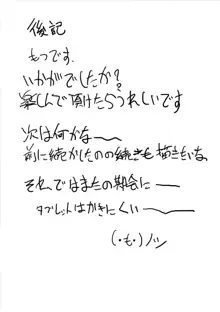 後記
もつです.
いかがでしたか?
楽しんで頂けたらうれしいです
次は何かな〜〜
前に続かしたのの続きも描きたいな。
それではまたの期会に――
タブレットはかきにくい――
(・も・)ノシ